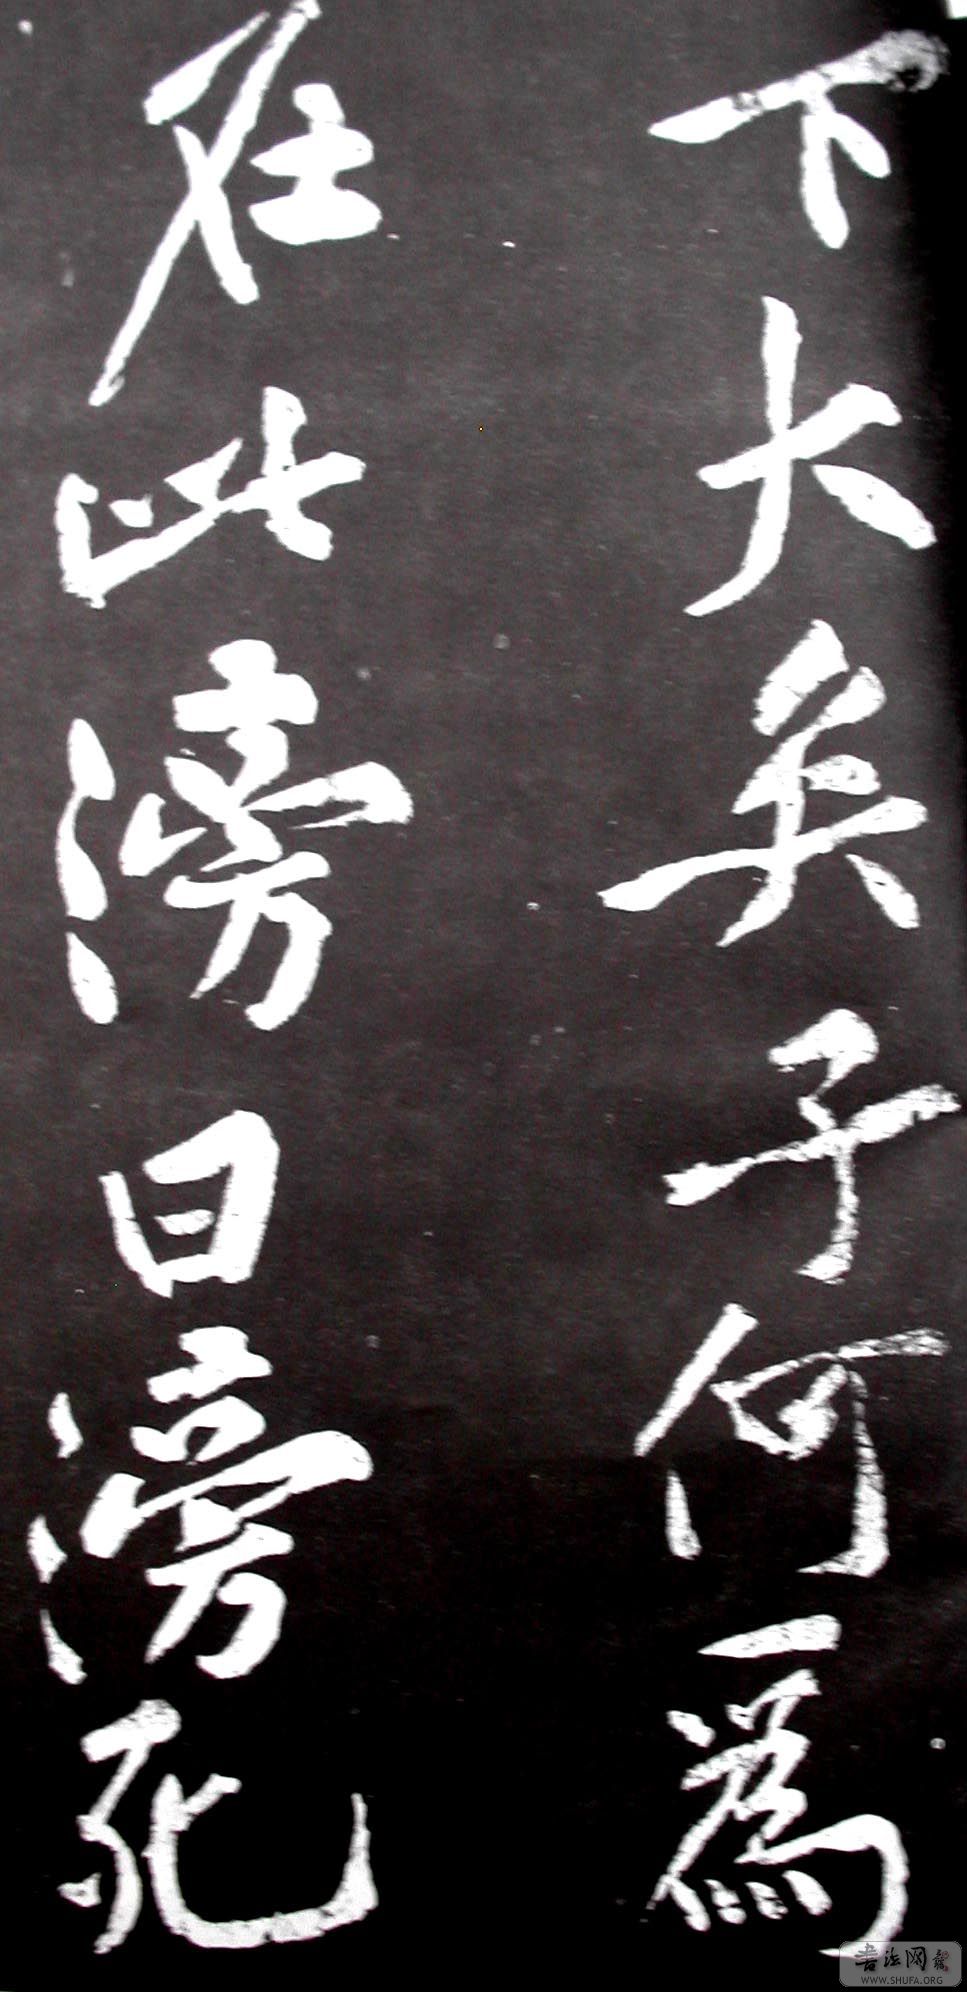 下大矣子何為
在此滂曰滂死
書法网
WWW.SHUFA.ORG